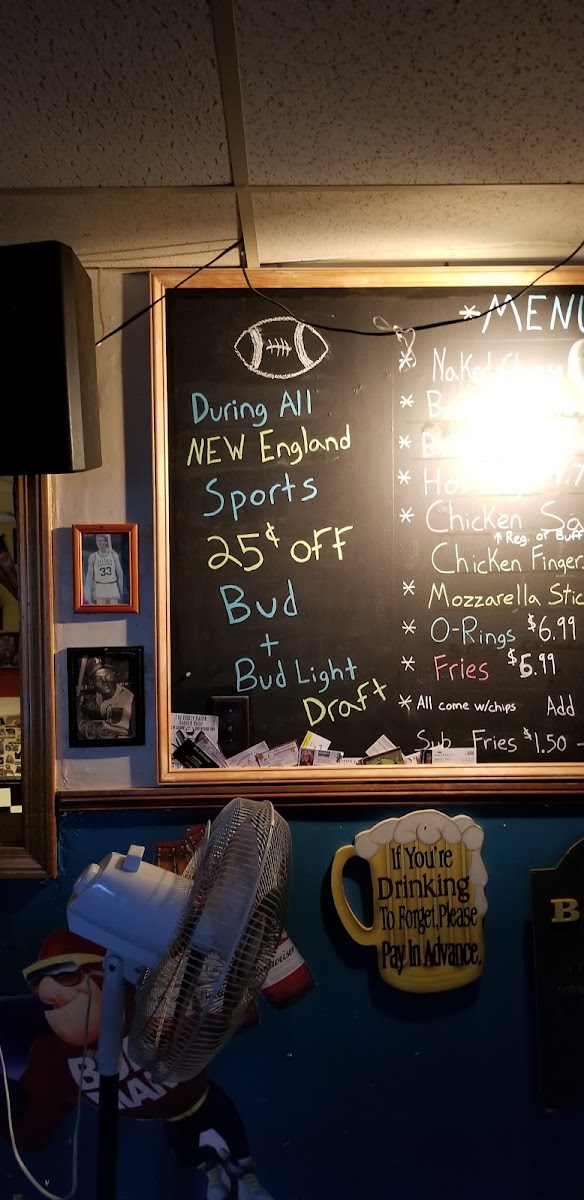 During All
NEW England
Sports
25¢ off
Bud
+
Bud Light
Draft
*MENU
* Naked
*
*
*
* Chicken
↑ Reg. or Buff
Chicken Finger
* Mozzarella Stic
* O-Rings $6.99
* Fries $5.99
* All come w/chips Add
Sub Fries $1.50 -
33
If You're
Drinking
To Forget, Please
Pay In Advance.
Budweiser
B